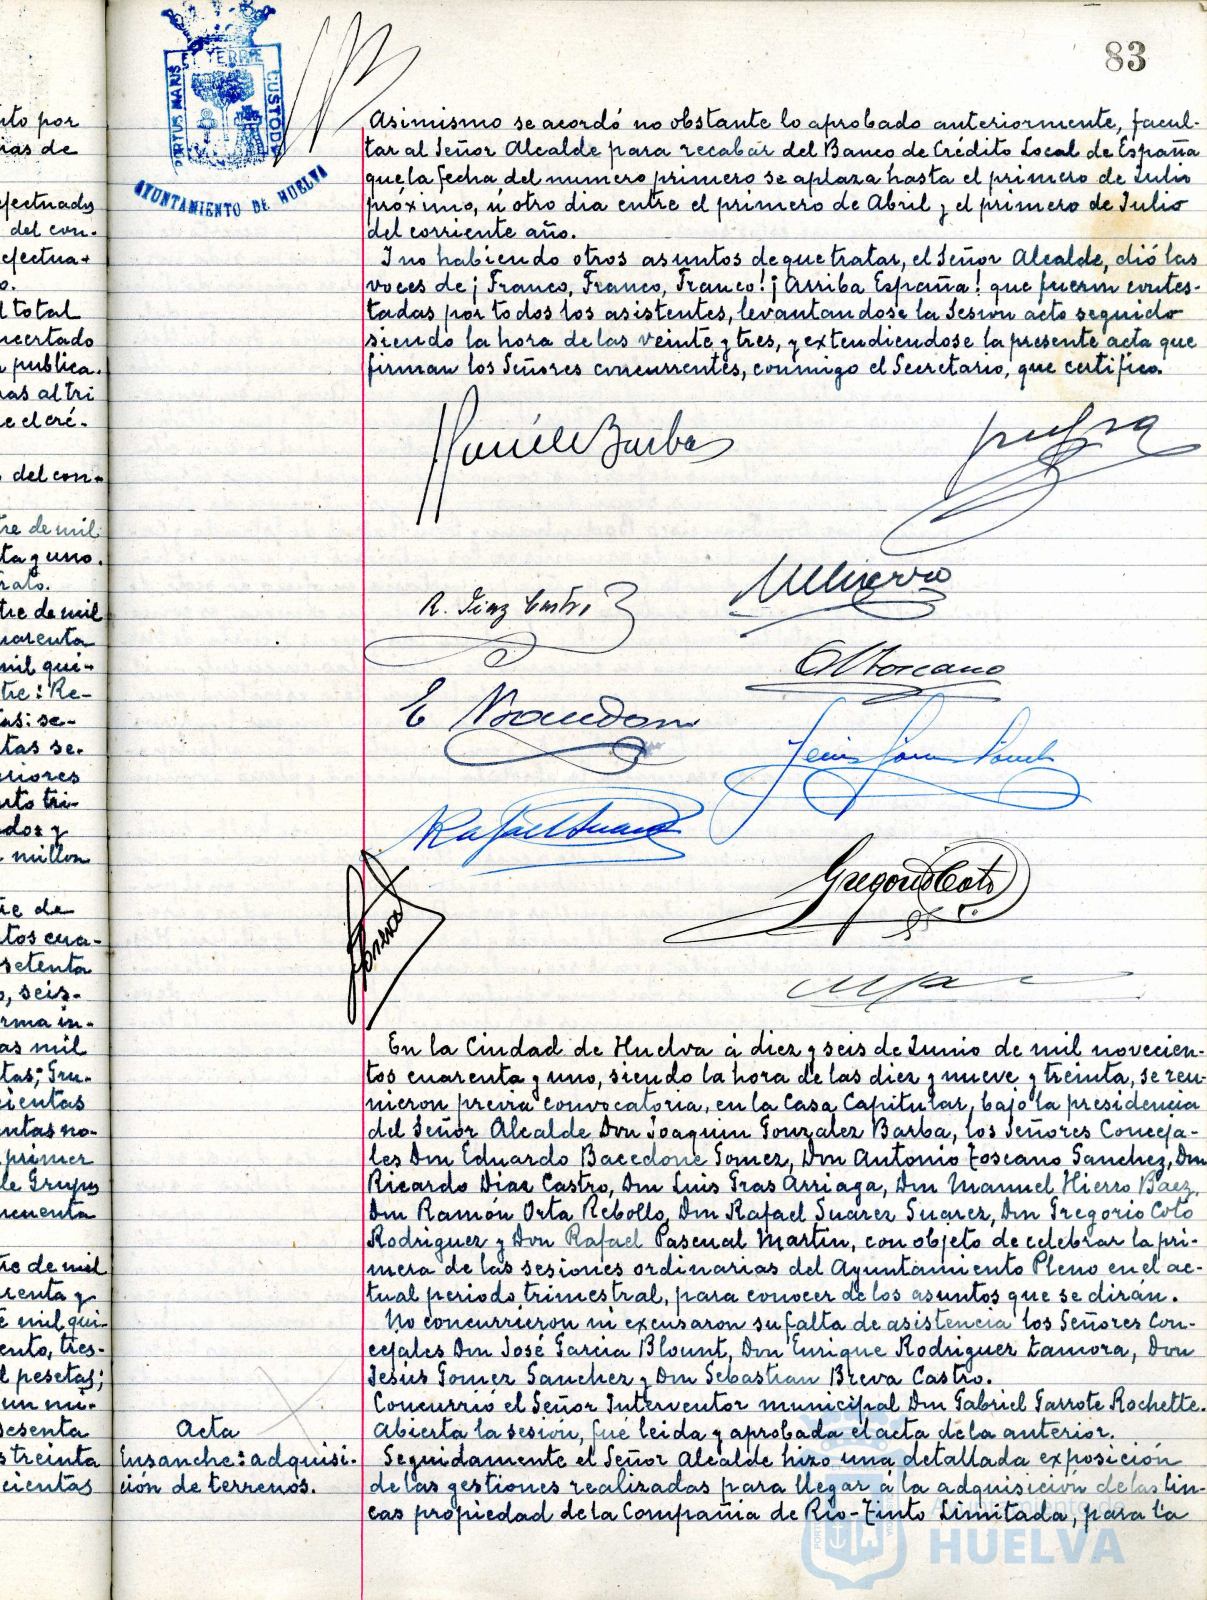 nto por
nas de
efectuados
del con-
efectua-
o.
l total
ncertado
publica.
nas al tri
e el cré-
del con-
tre de mil
ta y uno.
trato.
tre de mil
uarenta
mil qui-
tre: Re-
tas: se-
tas se-
riores
nto tri-
dos y
millon
re de
tos cua-
setenta
o, seis-
rma in-
as mil
tas; Gru-
cientas
entas no-
primer
de Grupos
ncuenta
re de mil
renta y
e mil qui-
ento, tres-
l pesetas;
un mi-
sesenta
s treinta
cientas
PORTUS MARIS ET TERRE CUSTODIA
AYUNTAMIENTO DE HUELVA
83
Asimismo se acordó no obstante lo aprobado anteriormente, facul-
tar al Señor Alcalde para recabar del Banco de Crédito Local de España
que la fecha del numero primero se aplaza hasta el primero de Julio
próximo, ú otro dia entre el primero de Abril y el primero de Julio
del corriente año.
Y no habiendo otros asuntos de que tratar, el Señor Alcalde, dió las
voces de ¡Franco, Franco, Franco! ¡Arriba España! que fueron contes-
tadas por todos los asistentes, levantandose la Sesion acto seguido
siendo la hora de las veinte y tres, y extendiendose la presente acta que
firman los Señores concurrentes, conmigo el Secretario, que certifico.
R. Diaz Castro
MHierro
A Toscano
Rafael Suarez
Gregorio Coto
En la Ciudad de Huelva á diez y seis de Junio de mil novecien-
tos cuarenta y uno, siendo la hora de las diez y nueve y treinta, se reu-
nieron previa convocatoria, en la Casa Capitular, bajo la presidencia
del Señor Alcalde Don Joaquin Gonzalez Barba, los Señores Conceja-
les Don Eduardo Bacedone Gomez, Don Antonio Toscano Sanchez, Don
Ricardo Diaz Castro, Don Luis Gras Arriaga, Don Manuel Hierro Baez,
Don Ramón Orta Rebollo, Don Rafael Suarez Suarez, Don Gregorio Coto
Rodriguez y Don Rafael Pascual Martin, con objeto de celebrar la pri-
mera de las sesiones ordinarias del Ayuntamiento Pleno en el ac-
tual periodo trimestral, para conocer de los asuntos que se dirán.
No concurrieron ni excusaron su falta de asistencia los Señores Con-
cejales Don José Garcia Blount, Don Enrique Rodriguez Zamora, Don
Jesús Gomez Sanchez y Don Sebastian Breva Castro.
Concurrió el Señor Interventor municipal Don Gabriel Garrote Rochette.
Acta
Abierta la sesión, fué leida y aprobada el acta de la anterior.
Ensanche: adquisi-
ción de terrenos.
Seguidamente el Señor Alcalde hizo una detallada exposición
de las gestiones realizadas para llegar á la adquisición de las fin-
cas propiedad de la Compañia de Rio-Tinto Limitada, para la
Ayuntamiento de
HUELVA